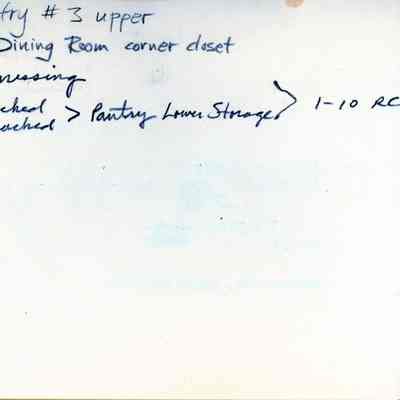 try # 3 upper
Dining Room corner closet
missing
cked > Pantry Lower Storage > 1-10 RC
ocked